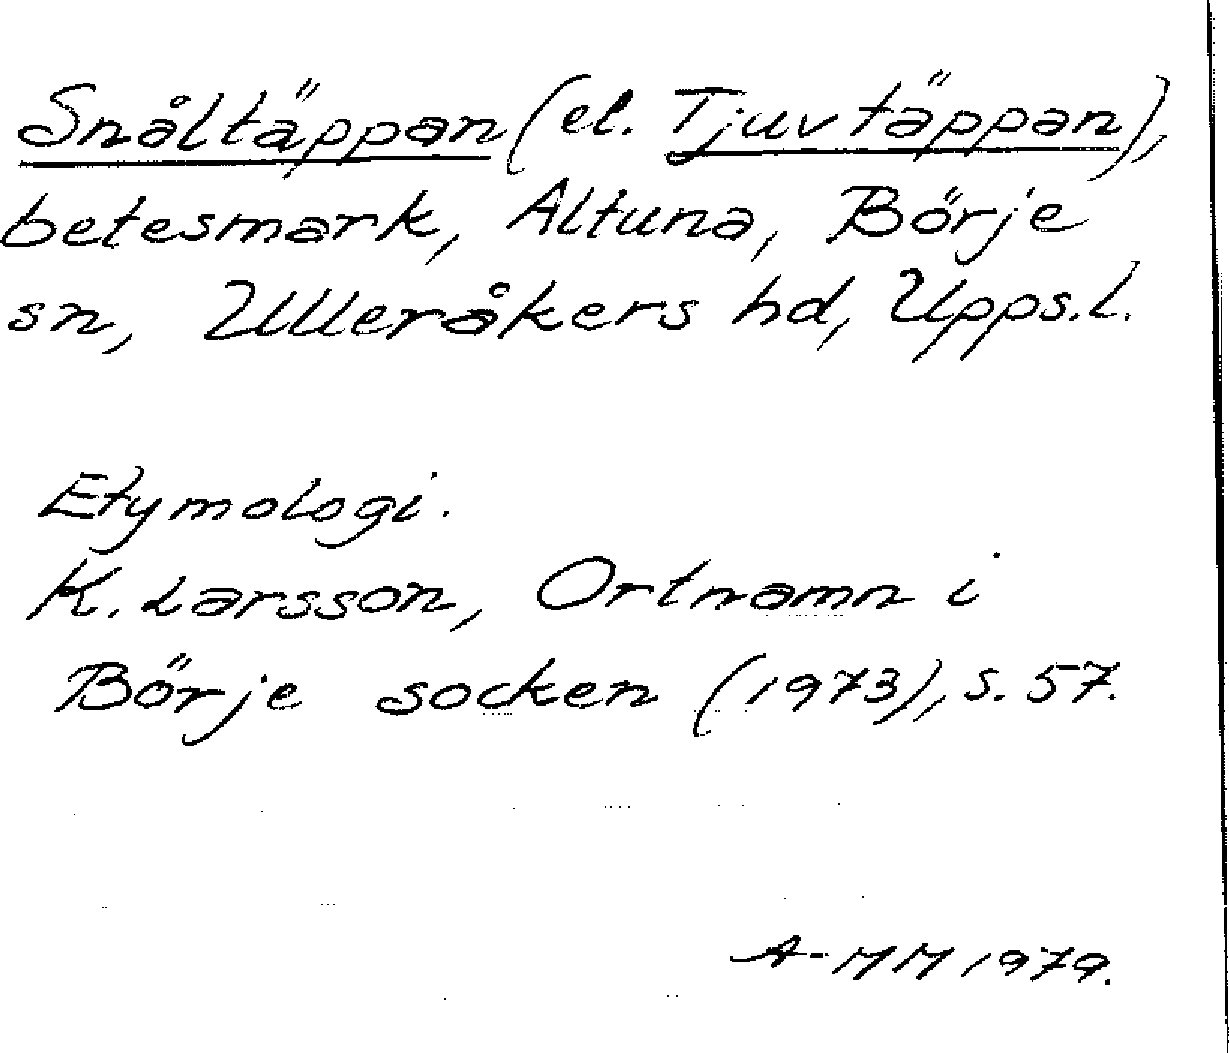 Snåltäppan (el. Tjuvtäppan),
betesmark, Altuna, Börje
sn, Ulleråkers hd, Upps.l.
Etymologi.
K. Larsson, Ortnamn i
Börje socken (1973), s. 57.
A-MM 1979.